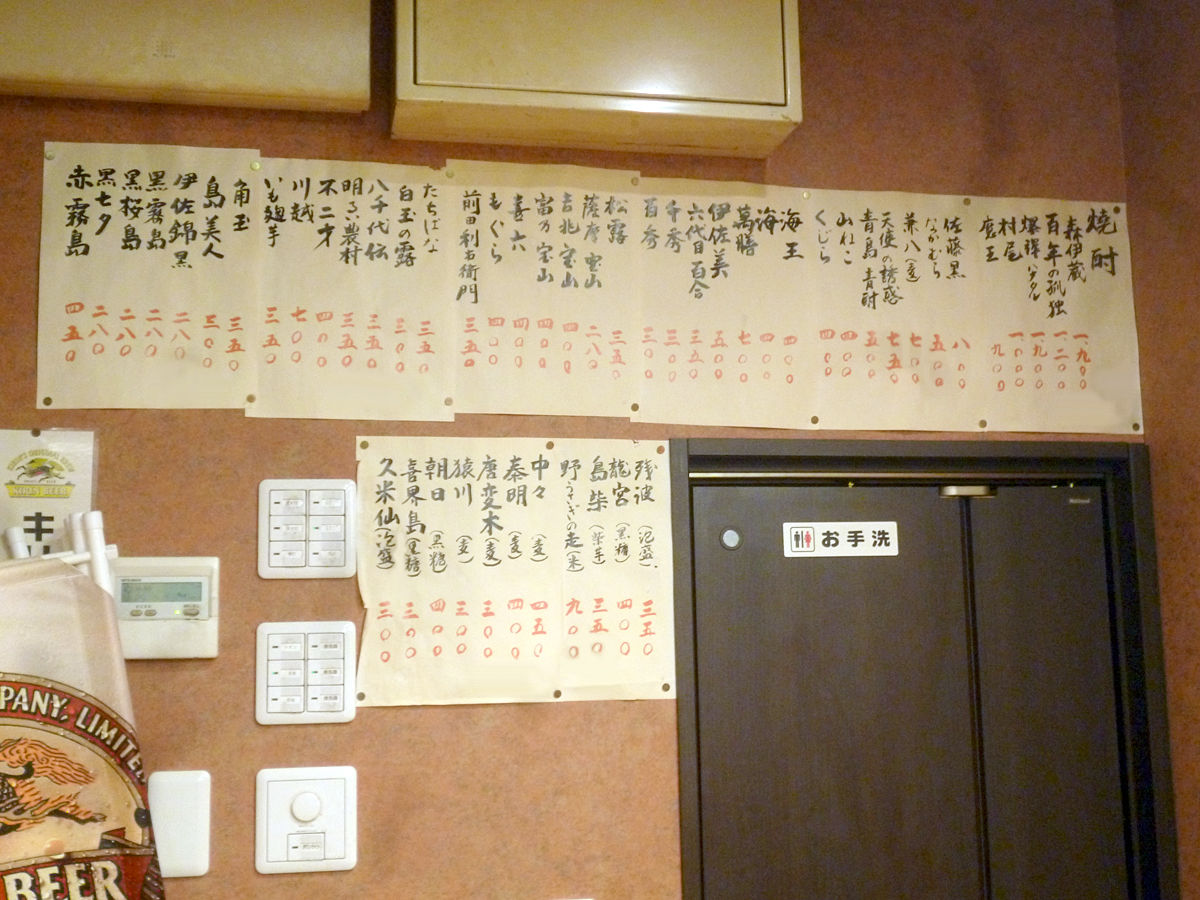 焼酎
森伊蔵 一、九〇〇
百年の孤独 一、二〇〇
爆弾ハナタレ 一、九〇〇
村尾 一、〇〇〇
魔王 九〇〇
佐藤黒 八〇〇
なかむら 五〇〇
兼八(麦) 七〇〇
天使の誘惑 七五〇
青島青酎 五〇〇
山ねこ 四〇〇
くじら 四〇〇
海王 四〇〇
海 四〇〇
萬膳 七〇〇
伊佐美 五〇〇
六代目百合 三五〇
千秀 三〇〇
百秀 三〇〇
松露 三五〇
薩摩宝山 二八〇
吉兆宝山 四〇〇
富乃宝山 四〇〇
喜六 四〇〇
もぐら 四〇〇
前田利右衛門 三五〇
たちばな 三五〇
白玉の露 三〇〇
八千代伝 三五〇
明るい農村 三五〇
不二才 四〇〇
川越 七〇〇
いも麹芋 三五〇
角玉 三五〇
島美人 三〇〇
伊佐錦黒 二八〇
黒霧島 二八〇
黒桜島 二八〇
黒七夕 二八〇
赤霧島 四五〇
残波(泡盛) 三五〇
龍宮(黒糖) 四〇〇
島柴(柴芋) 三五〇
野うさぎの走(米) 九〇〇
中々(麦) 四五〇
秦明(麦) 四〇〇
唐変木(麦) 三〇〇
猿川(麦) 三〇〇
朝日(黒糖) 四〇〇
喜界島(黒糖) 三〇〇
久米仙(泡盛) 三〇〇
お手洗
National
KIRIN BEER
キリ
MITSUBISHI
PANY, LIMITE
BEER